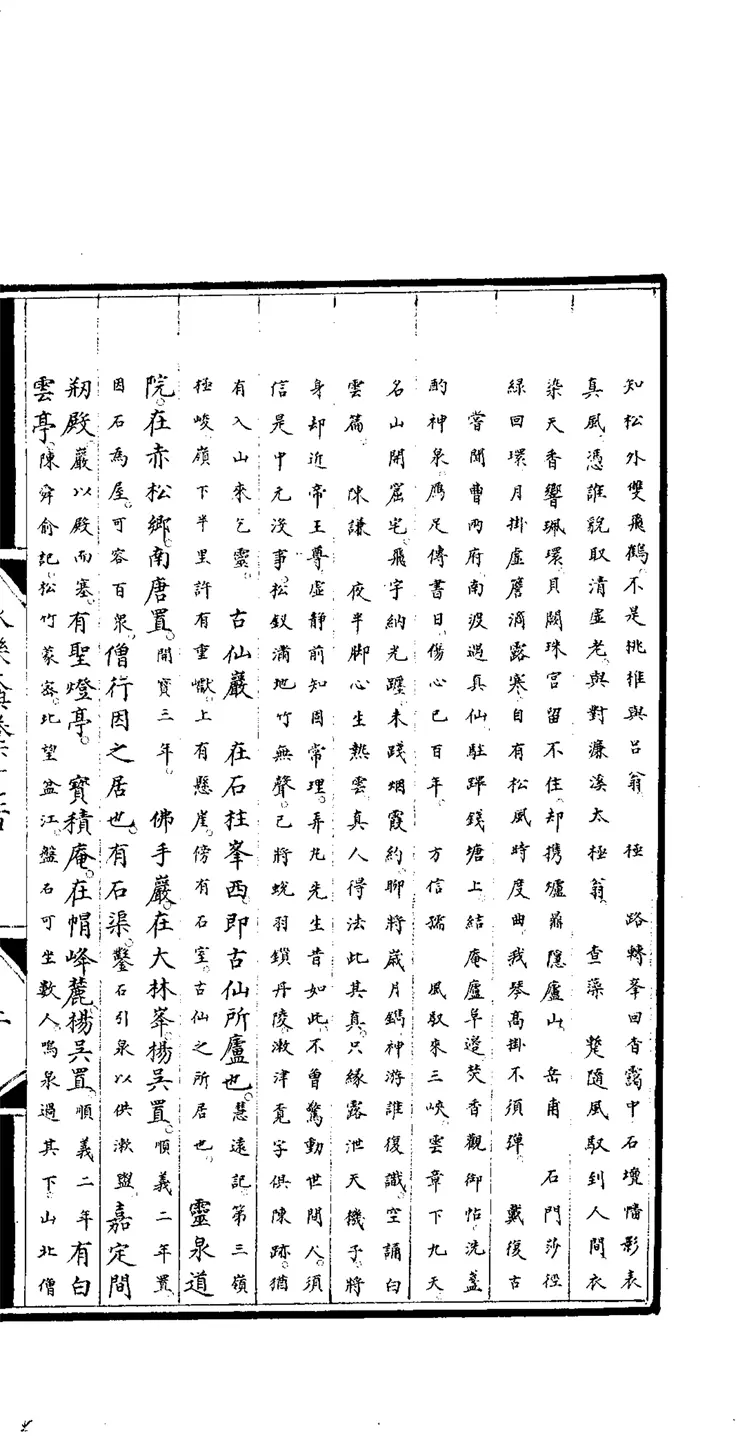 知松外雙飛鶴。不是挑推與呂翁　極　路轉峯回杳靄中石壇幡影表
真風。憑誰貌取清虛老。與對濂溪太極翁　查藻　蹔隨風馭到人間。衣
染天香響珮環。貝闕珠宮留不住。却携壚鼎隱廬山　岳甫　石門莎徑
綠回環。月掛虛簷滴露寒。自有松風時度曲。我琴高掛不須彈　戴復古
嘗聞曹兩府。南渡遇真仙。駐蹕錢塘上。結庵廬阜邊。焚香觀御帖。洗盞
酌神泉。鴈足傳書日。傷心已百年。　方信孺　風馭來三峽。雲章下九天
名山開窟宅。飛宇納光躔。未踐烟霞約。聊將歲月鐫。神游誰復識。空誦白
雲篇。　陳謙　夜半脚心生熱雲。真人得法此其真。只緣露泄天機子。將
身却近帝王尊。虛靜前知固常理。弄丸先生昔如此。不曾驚動世間人。須
信是中元沒事。松釵滿地竹無聲。已將蛻羽鎖丹陵。漱津覔字俱陳跡。猶
有入山來乞靈　古仙巖　在石柱峯西。即古仙所廬也。慧遠記。第三嶺
極峻。嶺下半里許有重巘。上有懸崖。傍有石室。古仙之所居也。　靈泉道
院。在赤松鄉。南唐置。開寶三年。　佛手巖。在大林峯。楊吳置。順義二年置。
因石為屋。可容百衆。僧行因之居也。有石渠。鑿石引泉以供漱盥。嘉定間
剏殿。巖以殿而塞。有聖燈亭。　寶積庵。在帽峰麓。楊吳置。順義二年有白
雲亭。陳舜俞記。松竹蒙密。北望盆江。盤石可坐數人。鳴泉過其下。山北僧